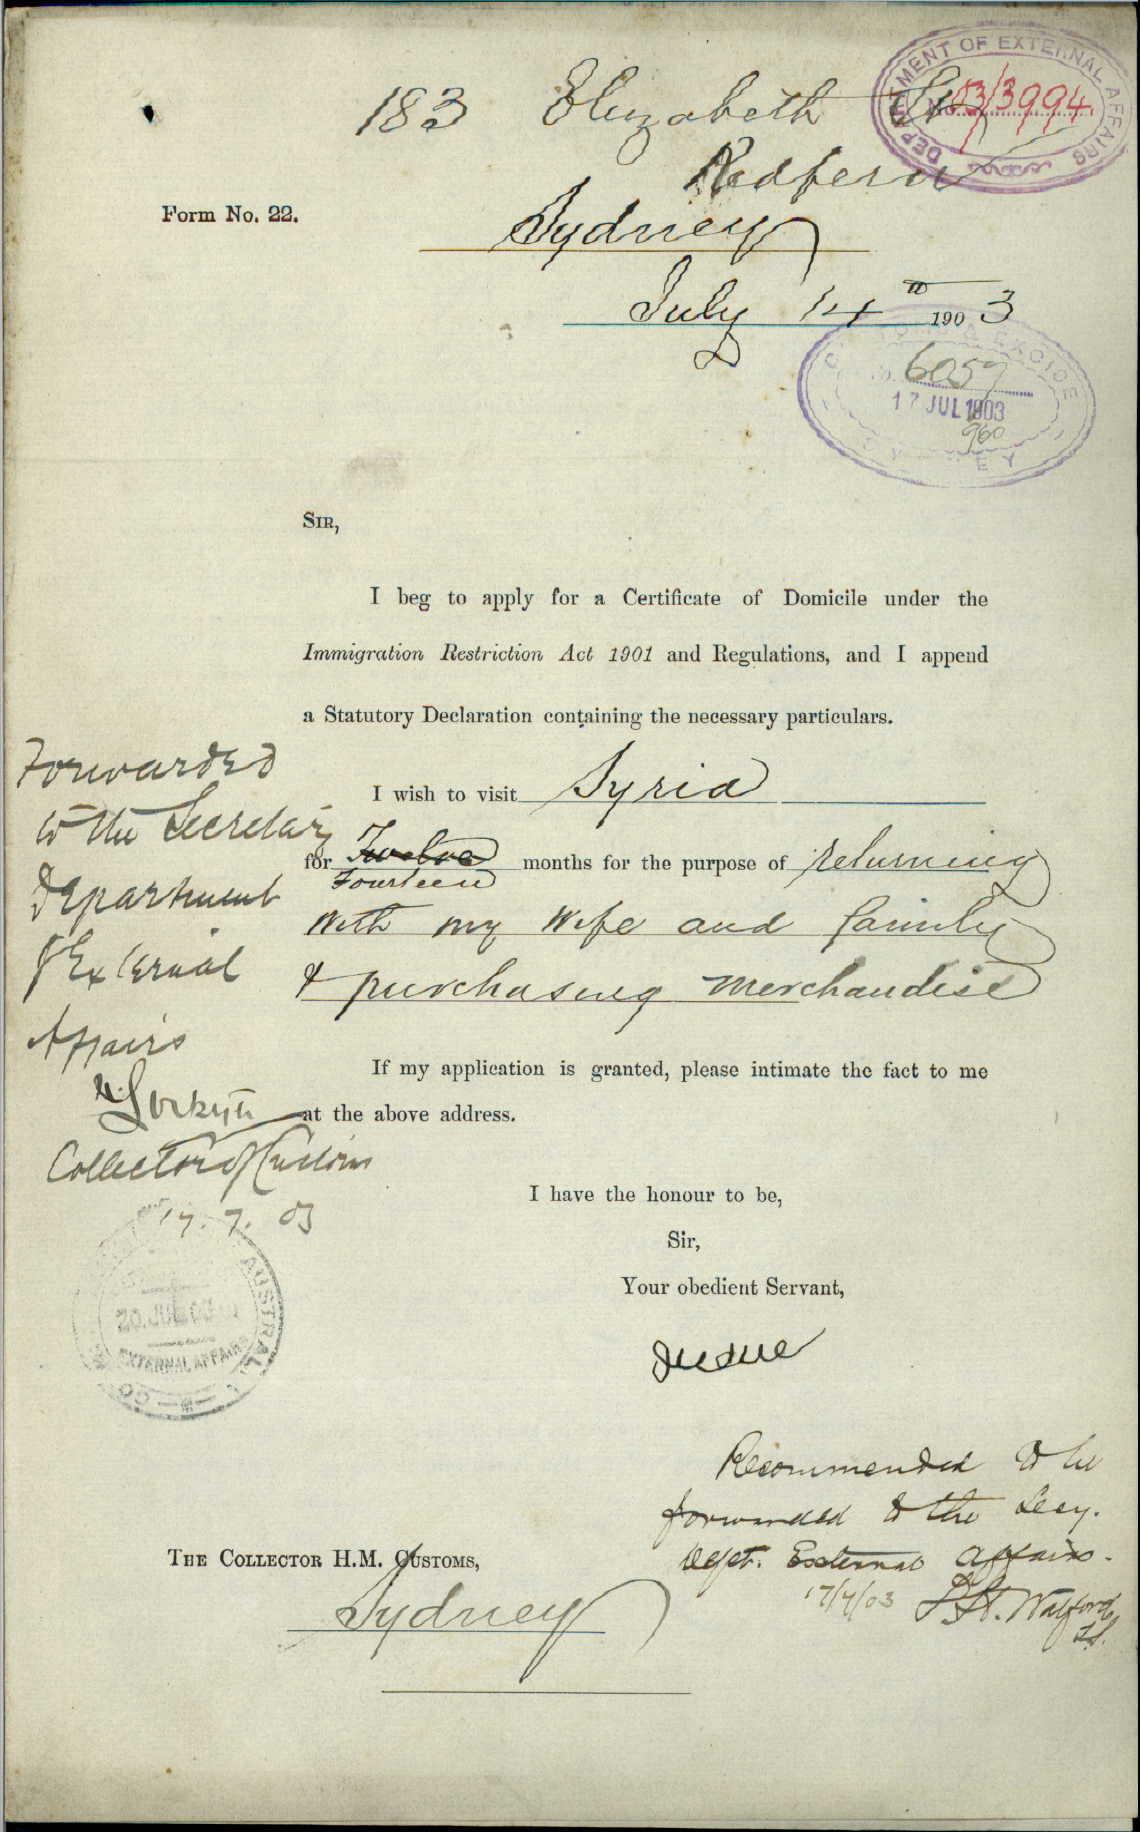 DEPARTMENT OF EXTERNAL AFFAIRS
No. 03/3994
183 Elizabeth St
Redfern
Form No. 22.
Sydney
July 14th 1903
6059
17 JUL 1903
960
SIR,
I beg to apply for a Certificate of Domicile under the
Immigration Restriction Act 1901 and Regulations, and I append
a Statutory Declaration containing the necessary particulars.
I wish to visit Syria
for Twelve months for the purpose of returning
Fourteen
with my wife and family
& purchasing merchandise
If my application is granted, please intimate the fact to me
at the above address.
Forwarded
to the Secretary
Department
of External
Affairs
Collector of Customs
17.7.03
20.JUL.03
EXTERNAL AFFAIRS
I have the honour to be,
Sir,
Your obedient Servant,
Recommended to be
forwarded to the Secy.
Dept. External Affairs.
17/7/03
Walford
THE COLLECTOR H.M. CUSTOMS,
Sydney